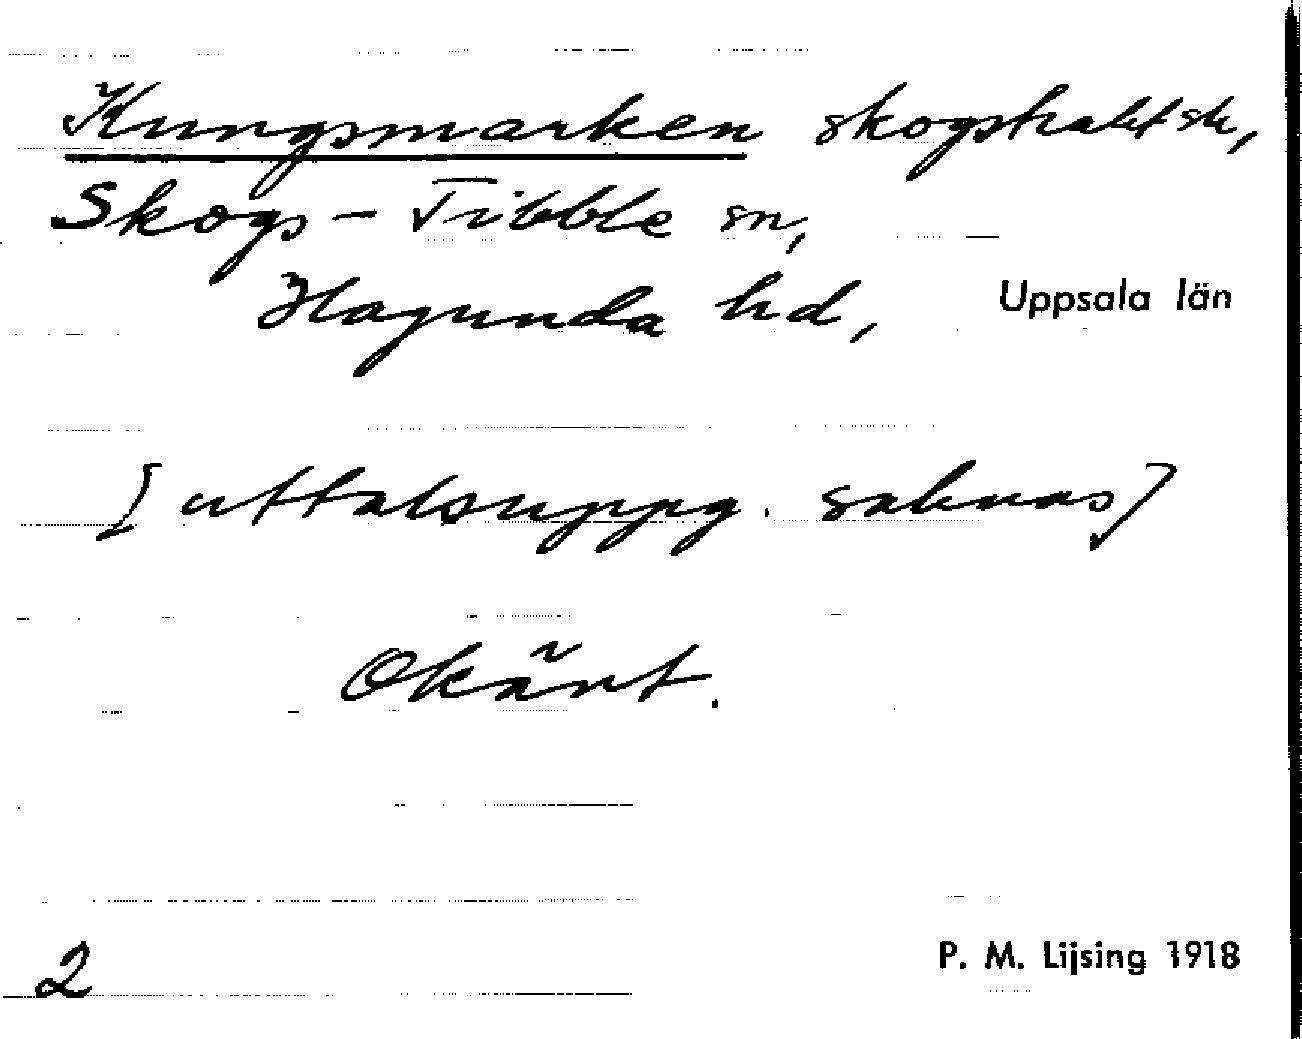 Kungsmarken skogstrakt
Skogs-Tibble sn,
Hagunda hd, Uppsala län
[uttalsuppg. saknas]
Okänt.
2 P. M. Lijsing 1918